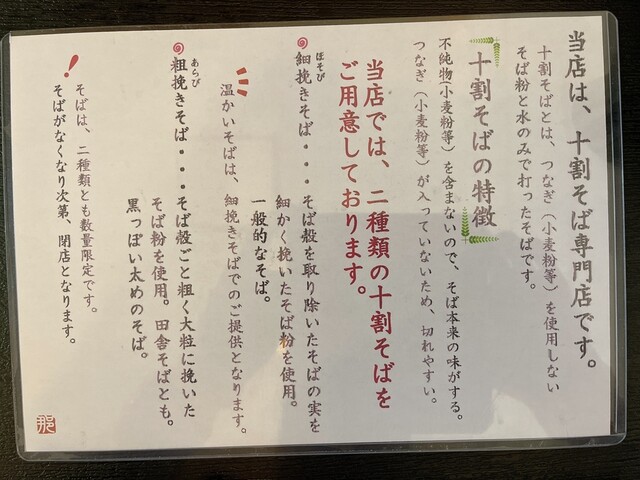 当店は、十割そば専門店です。
十割そばとは、つなぎ（小麦粉等）を使用しない
そば粉と水のみで打ったそばです。
十割そばの特徴
不純物（小麦粉等）を含まないので、そば本来の味がする。
つなぎ（小麦粉等）が入っていないため、切れやすい。
当店では、二種類の十割そばを
ご用意しております。
細挽きそば・・・そば殻を取り除いたそばの実を
ほそび
細かく挽いたそば粉を使用。
一般的なそば。
温かいそばは、細挽きそばでのご提供となります。
粗挽きそば・・・そば殻ごと粗く大粒に挽いた
あらび
そば粉を使用。田舎そばとも。
黒っぽい太めのそば。
！
そばは、二種類とも数量限定です。
そばがなくなり次第、閉店となります。